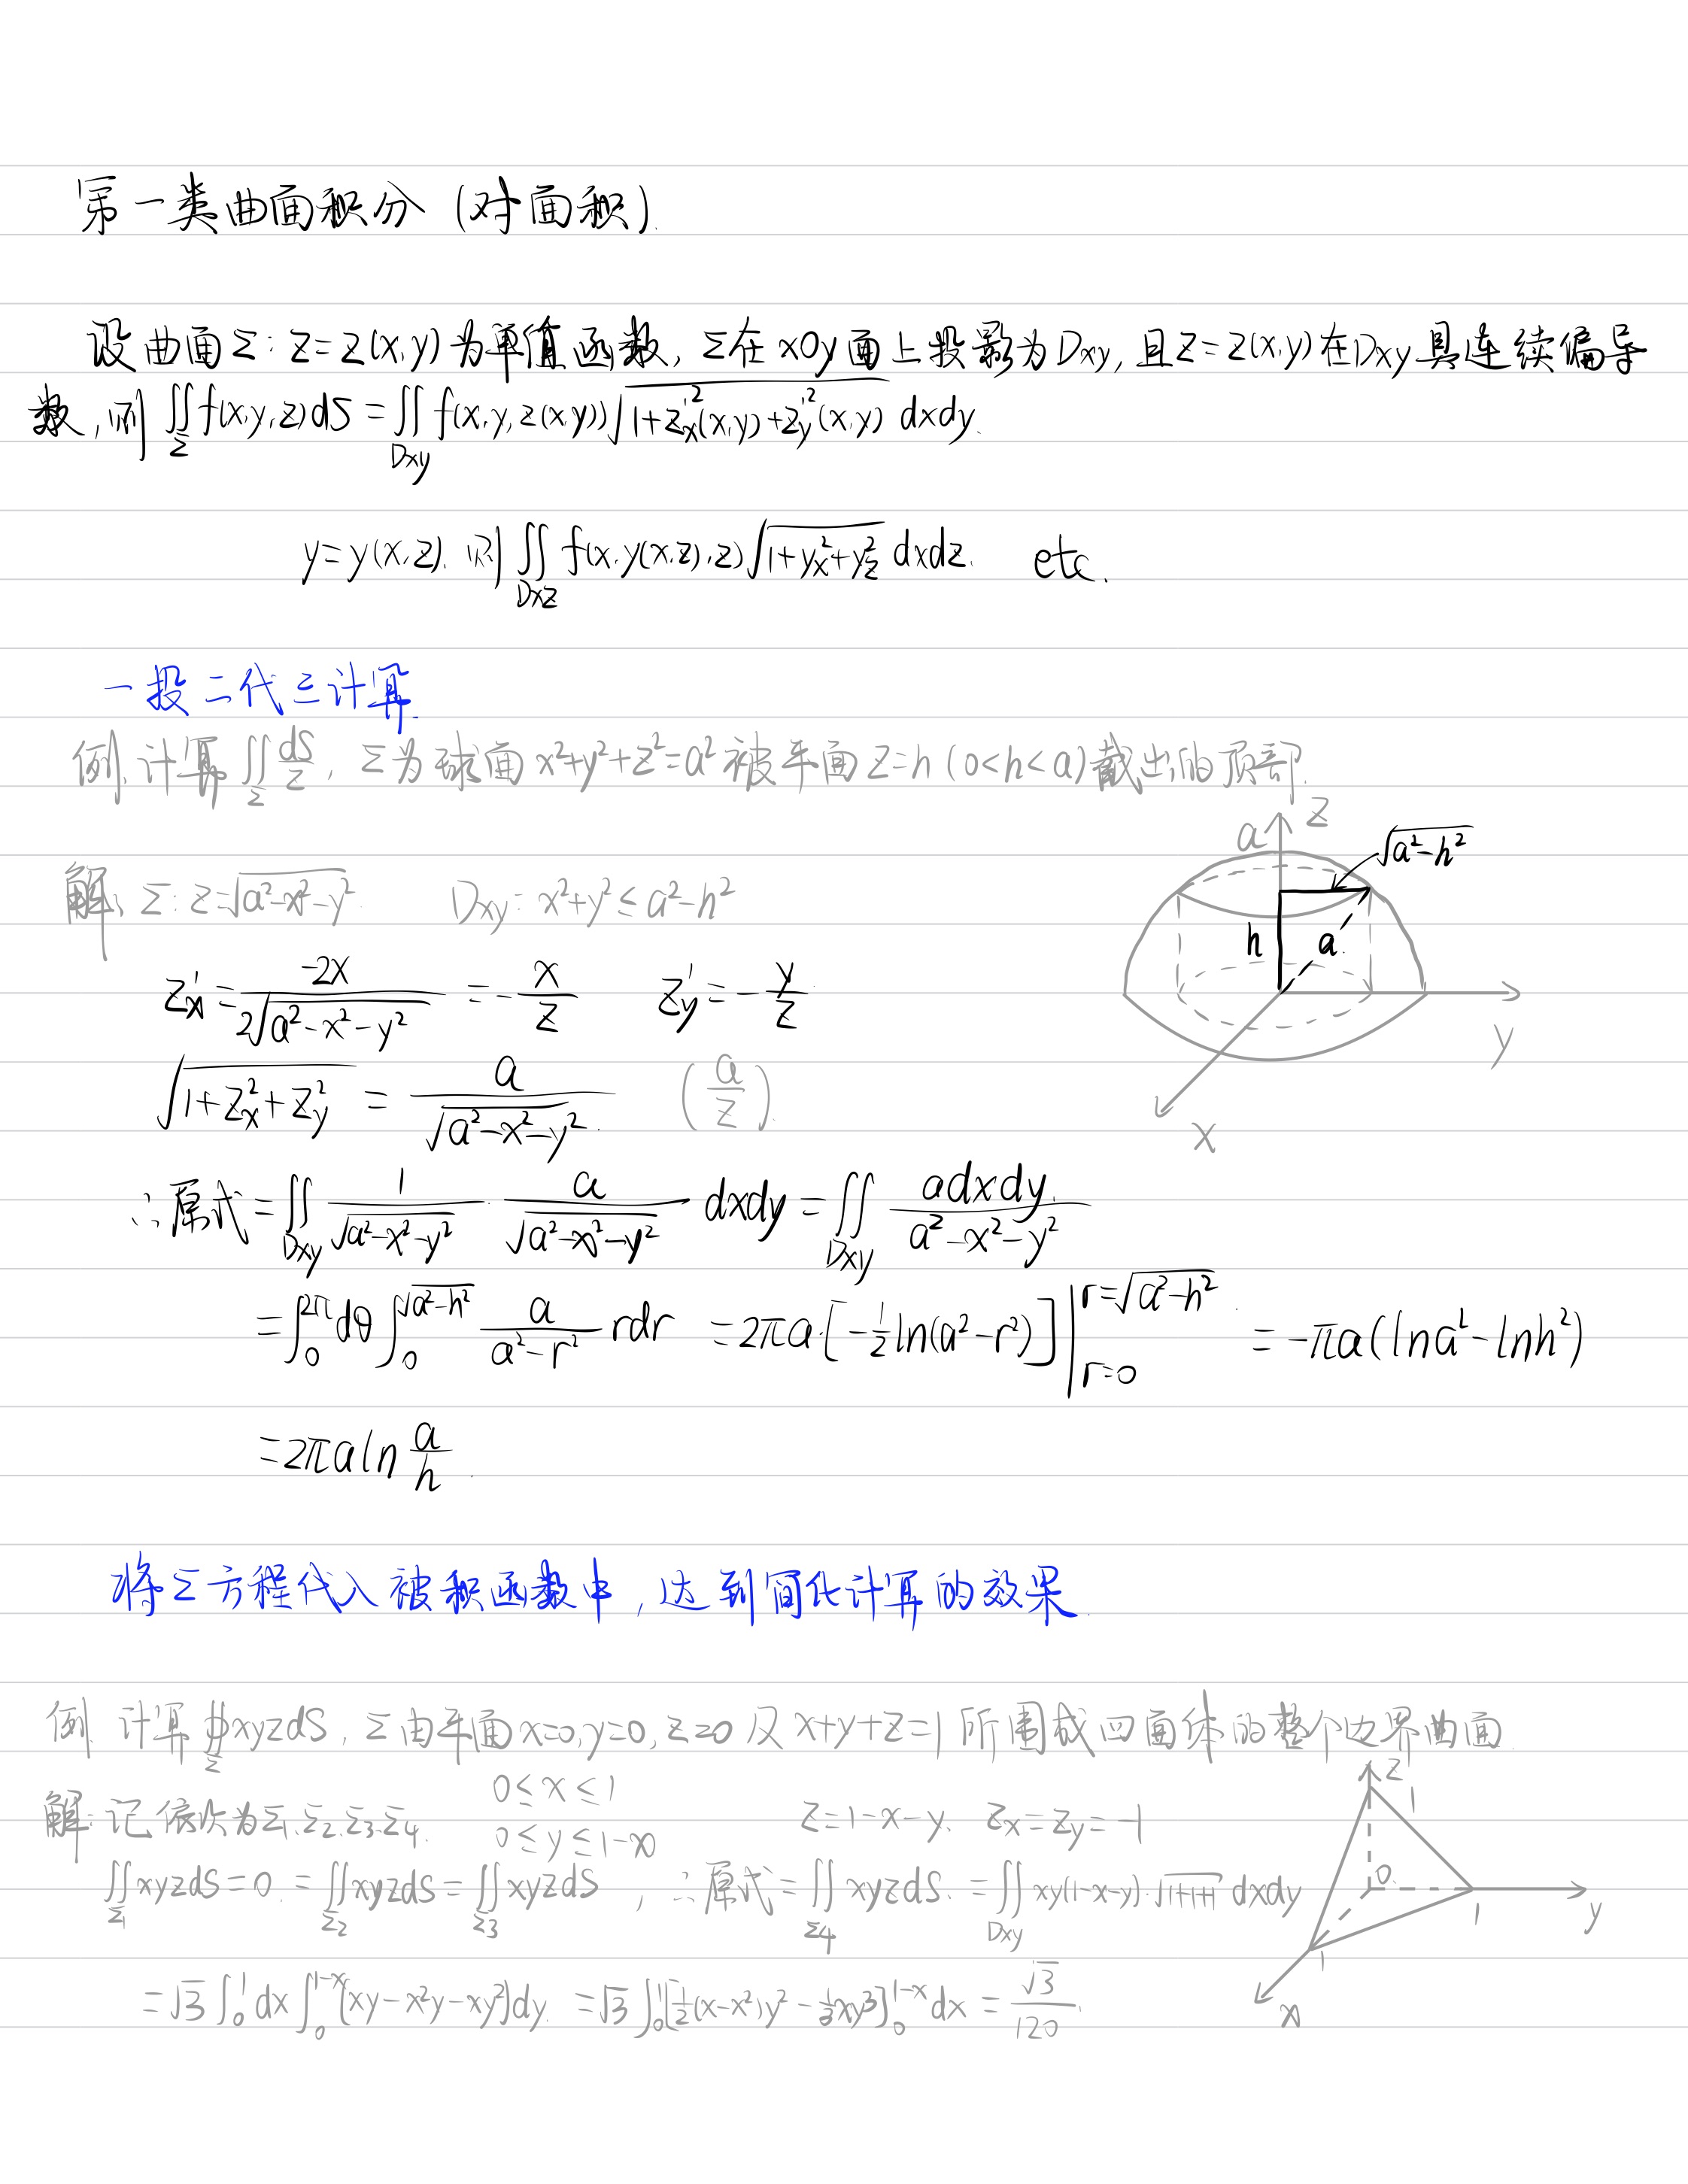 第一类曲面积分 (对面积).
设曲面Σ: z=z(x,y)为单值函数, Σ在xOy面上投影为Dxy, 且z=z(x,y)在Dxy具连续偏导
数, 则 ∬_Σ f(x,y,z)dS = ∬_Dxy f(x,y,z(x,y))√(1+z'_x²(x,y)+z'_y²(x,y)) dxdy.
y=y(x,z). 则 ∬_Dxz f(x,y(x,z),z)√(1+y_x²+y_z²) dxdz. etc.
一投二代三计算.
例. 计算 ∬_Σ dS/z, Σ为球面x²+y²+z²=a²被平面z=h (0<h<a)截出的顶部.
解: Σ: z=√(a²-x²-y²) Dxy: x²+y²≤a²-h²
z'_x = -2x/(2√(a²-x²-y²)) = -x/z z'_y = -y/z
√(1+z_x²+z_y²) = a/√(a²-x²-y²) (a/z).
∴原式 = ∬_Dxy 1/√(a²-x²-y²) · a/√(a²-x²-y²) dxdy = ∬_Dxy adxdy/(a²-x²-y²)
= ∫_0^2π dθ ∫_0^√(a²-h²) a/(a²-r²) rdr = 2πa·[-1/2 ln(a²-r²)] |_r=0^r=√(a²-h²) = -πa(lna²-lnh²)
= 2πaln a/h.
z
a
√(a²-h²)
h
a
y
x
将Σ方程代入被积函数中, 达到简化计算的效果.
例. 计算 ∯_Σ xyzdS, Σ由平面x=0,y=0,z=0及x+y+z=1所围成四面体的整个边界曲面.
解: 记依次为Σ₁.Σ₂.Σ₃.Σ₄. 0≤x≤1 0≤y≤1-x z=1-x-y. z_x=z_y=-1
∬_Σ₁ xyzdS=0. = ∬_Σ₂ xyzdS = ∬_Σ₃ xyzdS, ∴原式 = ∬_Σ₄ xyzdS. = ∬_Dxy xy(1-x-y)·√(1+1+1) dxdy
= √3 ∫_0^1 dx ∫_0^1-x (xy-x²y-xy²)dy. = √3 ∫_0^1 [1/2(x-x²)y² - 1/3xy³]_0^1-x dx = √3/120.
z
1
0
1
y
1
x